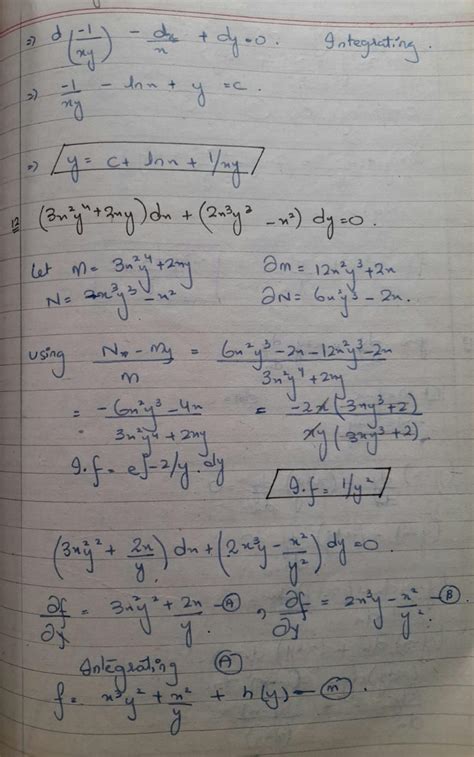 ⇒ d(-1/xy) - dx/x + dy=0. Integrating.
⇒ -1/xy - lnx + y = c.
⇒ y = c + lnx + 1/xy
12 (3x²y⁴+2xy)dx + (2x³y³ - x²) dy=0.
let M= 3x²y⁴+2xy ∂M = 12x²y³+2x
N= 2x³y³-x² ∂N = 6x²y³ - 2x.
using Nx - My / M = 6x²y³-2x-12x²y³-2x / 3x²y⁴+2xy
= -6x²y³-4x / 3x²y⁴+2xy = -2x(3xy³+2) / xy(3xy³+2)
I.f = e∫-2/y.dy I.f = 1/y²
(3x²y² + 2x/y) dx + (2x³y - x²/y²) dy=0.
∂f/∂x = 3x²y² + 2x/y -Ⓐ, ∂f/∂y = 2x³y - x²/y² -Ⓑ
Integrating Ⓐ
f= x³y² + x²/y + h(y) -ⓜ.